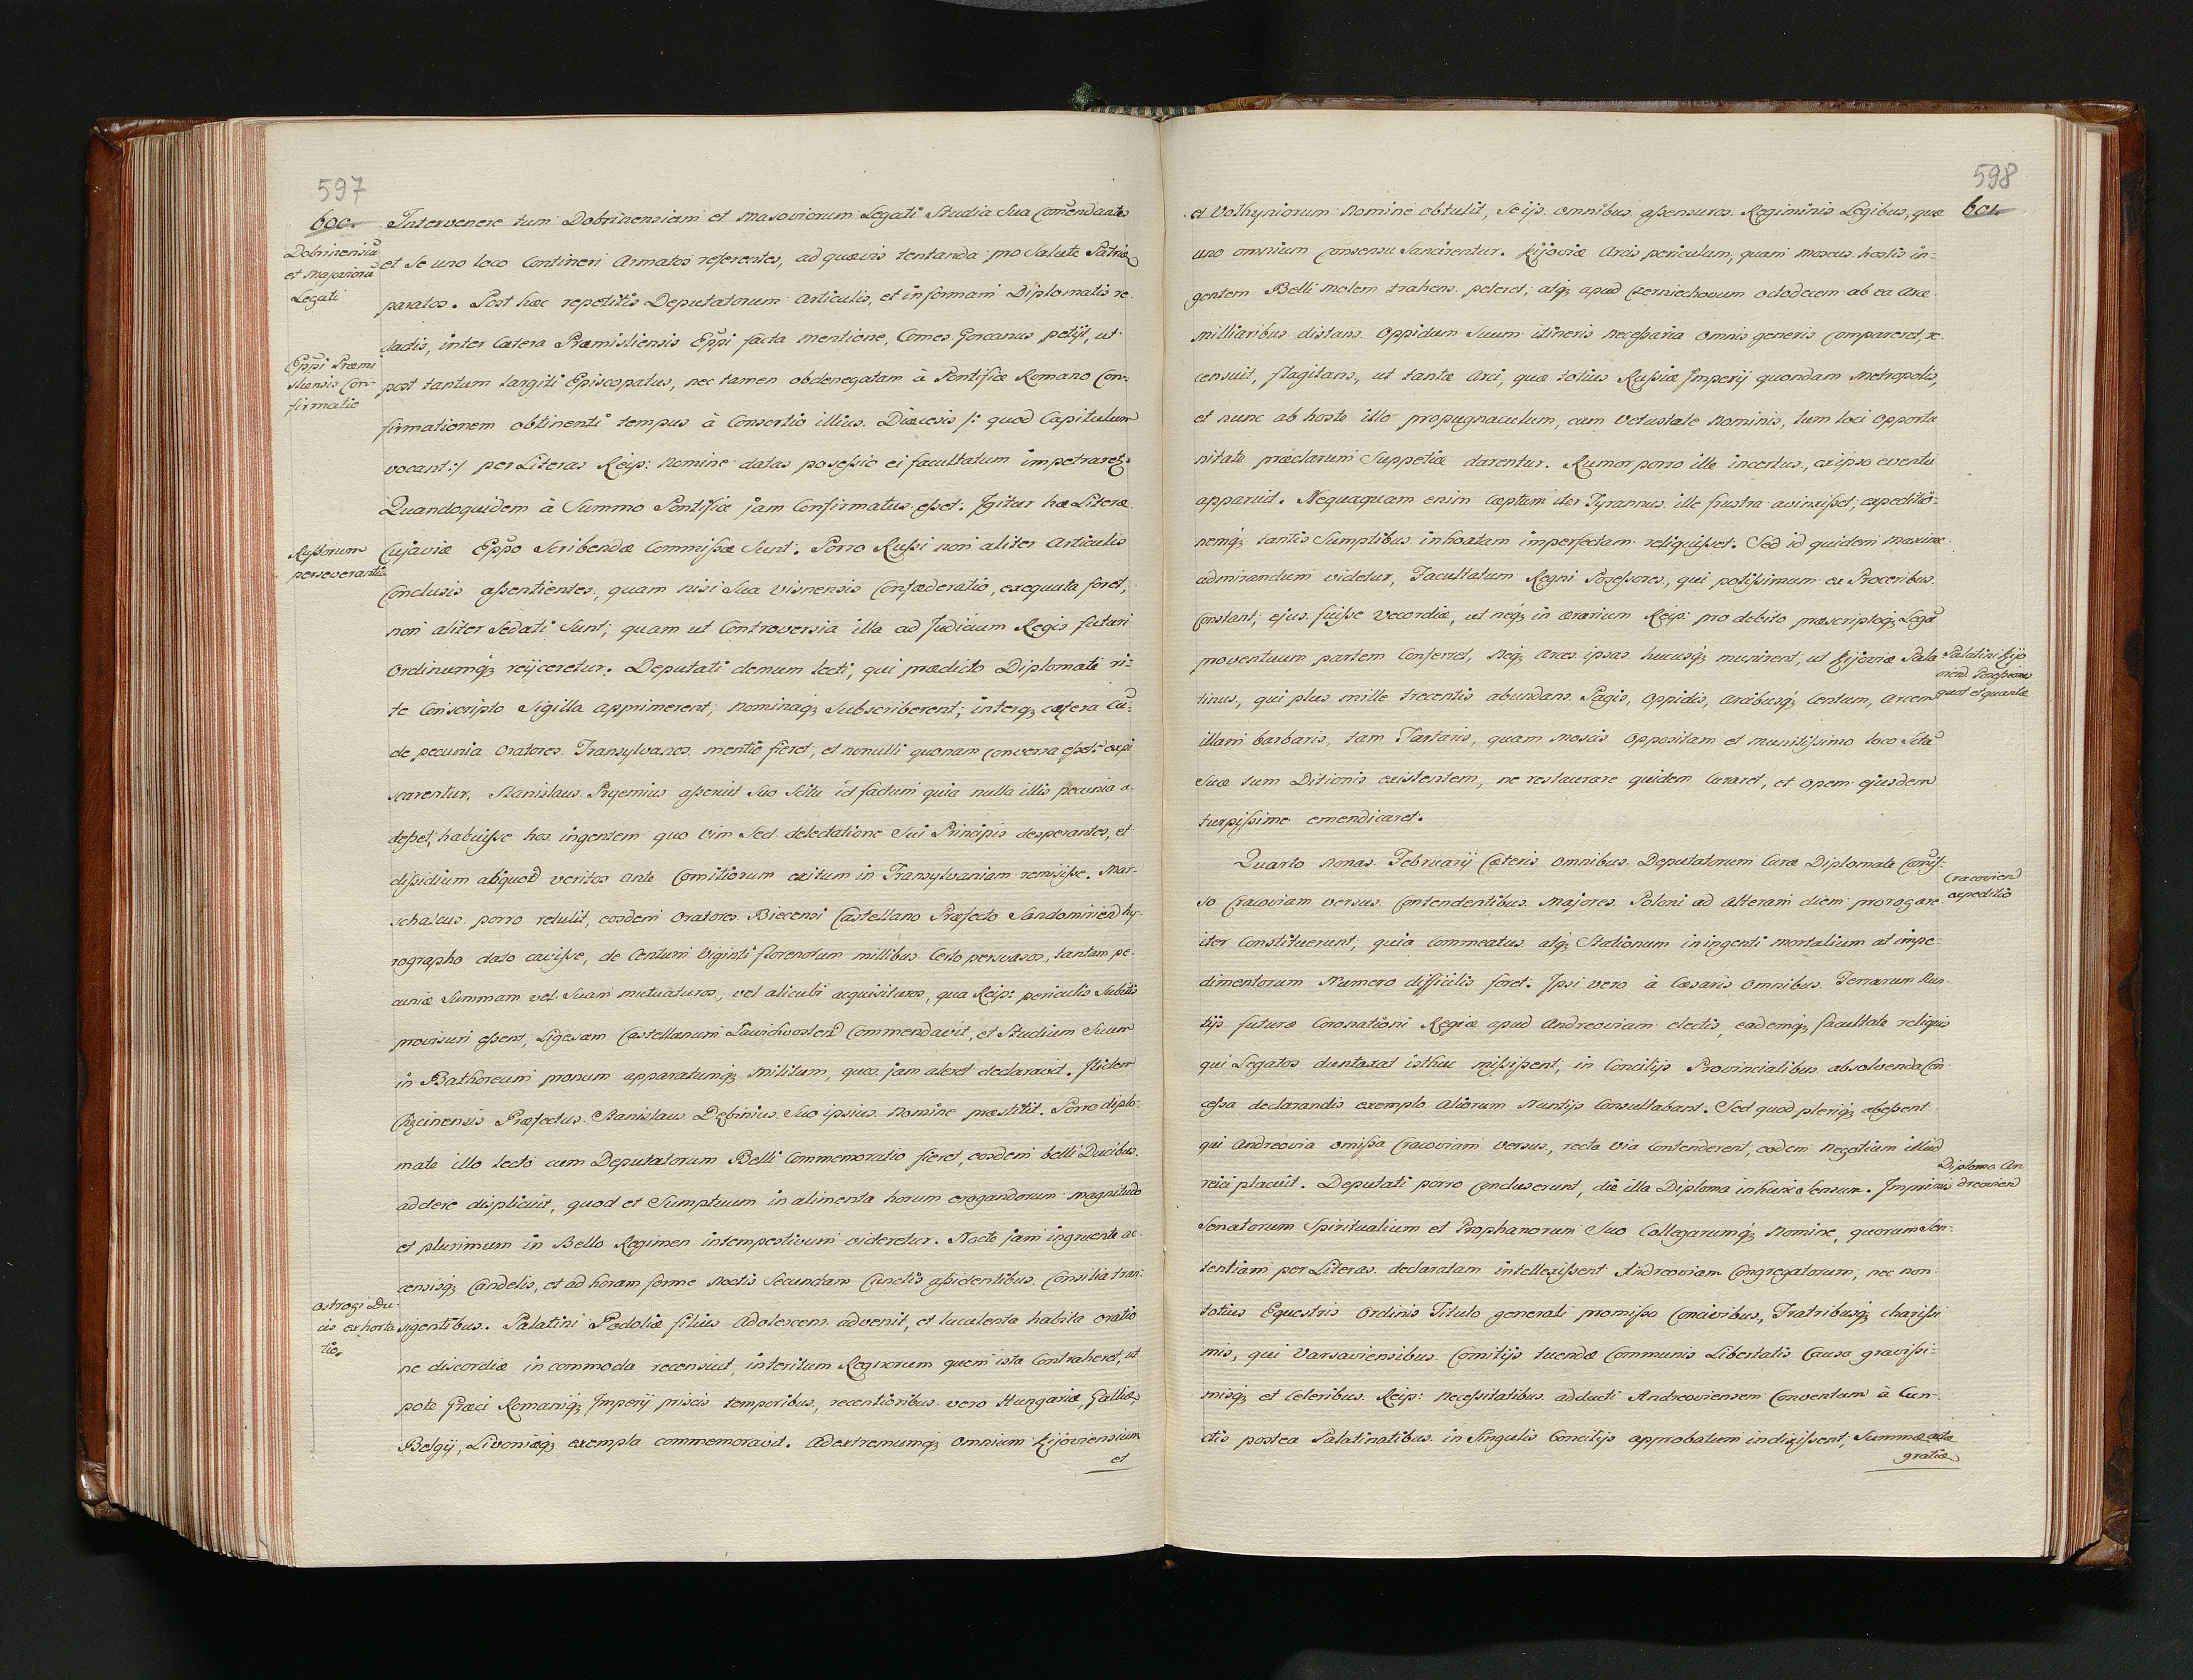 597
600.
Intervenere tum Dobrinensium et Masoviorum Legati Studia Sua Comendantes
Dobrinensiū
et Masovioru
Legati
et Se uno loco Contineri Armatos referentes, ad quævis tentanda pro Salute Patriæ
paratos. Post hæc repetitis Deputatorum Articulis, et in formam Diplomatis re-
dactis, inter Cætera Præmisliensis Eppi facta mentione, Comes Gorcanus petijt, ut
Eppi Præmi
sliensis Con-
firmatio
post tantum largiti Episcopatus, nec tamen obdenegatam à Pontifice Romano Con-
firmationem obtinenti tempus à Consortio illius. Diæcesis /: quod Capitulum
vocant :/ per Literas Reip: Nomine datas possessio ei facultatum impetraret,
Quandoquidem à Summo Pontifice jam Confirmatus esset. Igitur hæ Literæ
Cujaviæ Eppo Scribendæ Commissæ Sunt. Porro Russi non aliter Articulis
Russorum
perseverantia
Conclusis assentientes, quam nisi Sua Visnensis Confæderatio, exequuta foret,
non aliter Sedati Sunt, quam ut Controversia illa ad Judicium Regis futuri
Ordinumq; reijceretur. Deputati demum lecti, qui prædicto Diplomati ri-
te Conscripto Sigilla apprimerent, Nominaq; Subscriberent; interq; cætera Cū
de pecunia Oratores Transylvanos mentio fieret, et nonulli quonam conversa esset expi
scarentur, Stanislaus Pryemius asseruit Suo Scitu id factum quia nulla illis pecunia a-
desset, habuisse hos ingentem quo vim Sed delectatione Sui Principis desperantes, et
dissidium aliquod veritos ante Comitiorum exitum in Transylvaniam remisisse. Mar-
schalcus porro retulit, eosdem Oratores Biecensi Castellano Præfecto Sandomirien hy-
rographo dato cavisse, de Centum Viginti florenorum millibus Certo persuasos, tantam pe-
cuniæ Summam vel Suam mutuaturos, vel alicubi acquisituros, qua Reip: periculis Subitis
provisuri essent, Ligesam Castellanum Zawichosten Commendavit, et Studium Suum
in Bathoreum pronum apparatumq; Militum, quos jam aleret declaravit. Itidem
Chzcinensis Præfectus Stanislaus Dębinius Suo ipsius Nomine præstitit. Porro diplo-
mate illo lecto cum Deputatorum Belli Commemoratio fieret, eosdem belli Ducibus
addere displicuit, quod et Sumptuum in alimenta horum erogandorum magnitudo
et plurimum in Bello Regimen intempestivum videretur. Nocte jam ingruente ac-
censisq; Candelis, et ad horam ferme Noctis Secundam Cunctis assidentibus Consilia tran-
Ostrogi Du-
cis exhorta
tio
sigentibus. Palatini Podoliæ filius Adolescens advenit, et luculenta habita oratio
ne discordiæ incommoda recensuit, interitum Regnorum quem ista Contraheret, ut
pote Græci Romaniq; Imperij priscis temporibus, recentioribus vero Hungariæ, Galliæ,
Belgij, Livoniæq; exempla commemoravit. Ad extremumq; omnium Kijoviensium
et
598
601.
et Volhyniorum Nomine obtulit, Se ijs omnibus assensuros Regiminis Legibus, quæ
uno omnium Consensu Sancirentur. Kijoviæ Arcis periculum, quam Moscus hostis in-
gentem Belli molem trahens peteret; atq; apud Czerniechovum octodecem ab ea Arce
milliaribus distans Oppidum Suum itineris Necessaria Omnis generis Compareret, re-
censuit, flagitans, ut tantæ Arci, quæ totius Russiæ Imperij quondam Metropolis,
et nunc ab hoste illo propugnaculum, cum Vetustate Nominis, tum loci opportu
nitate præclarum Suppetiæ darentur. Rumor porro ille incertus, ex ipso eventu
apparuit. Nequaquam enim Cæptum iter Tyrannus ille frustra avertisset; expeditio-
nemq; tantis Sumptibus inhoatam imperfectam reliquisset. Sed id quidem maxime
admirandum videtur, Facultatum Regni Possessores, qui potissimum ex Proceribus
Constant, ejus fuisse vecordiæ, ut neq; in ærarium Reip: pro debito præscriptoq; Legū
proventuum partem Conferret, Neq; Arces ipsas hucusq; munirent, ut Kijoviæ Pala
Palatini Kijo
vien Possessiones
quot et quantæ
tinus, qui plus mille trecentis abundans Pagis, Oppidis, Arcibusq; Centum, Arcem
illam barbaris, tam Tartaris, quam Moscis Oppositam et munitissimo loco Sitā
Suæ tum Ditionis existentem, ne restaurare quidem Curaret, et Opem ejusdem
turpissime emendicaret.
Quarto Nonas Februarij Cæteris omnibus Deputatorum Curæ Diplomate Comis-
so Cracoviam versus Contendentibus Majores Poloni ad Alteram diem prorogare
Cracovien
expeditio
iter Constituerunt, quia Commeatus atq; Stationum in ingenti mortalium at impe-
dimentorum Numero difficilis foret. Ipsi vero à Cæsaris Omnibus Terrarum Nun-
tijs futuræ Coronationi Regiæ apud Andreoviam electis, eademq; facultate reliquis
qui Legatos duntaxat isthuc misissent, in Concilijs Provincialibus absolvenda Con-
cessa declarandis exemplo Aliorum Nuntijs Consultabant. Sed quod pleriq; abessent
qui Andreovia omissa Cracoviam versus, recta via Contenderent, eodem Negotium illud
reici placuit. Deputati porro Concluserunt, die illa Diploma in hunc Sensum. Imprimis
Diploma An
dreovien
Senatorum Spiritualium et Prophanorum Suo Collegarumq; Nomine, quorum Sen-
tentiam per Literas declaratam intellexissent Andreoviam Congregatorum, nec non
totius Equestris Ordinis Titulo generali promisso Concivibus, Fratribusq; charissi
mis, qui Varsaviensibus Comitijs tuendæ Communis Libertatis Causa gravissi-
misq; et Celeribus Reip: Necessitatibus adducti Andreoviensem Conventum à Cun-
ctis postea Palatinatibus in Singulis Concilijs approbatum indixissent, Summæ actæ
gratiæ